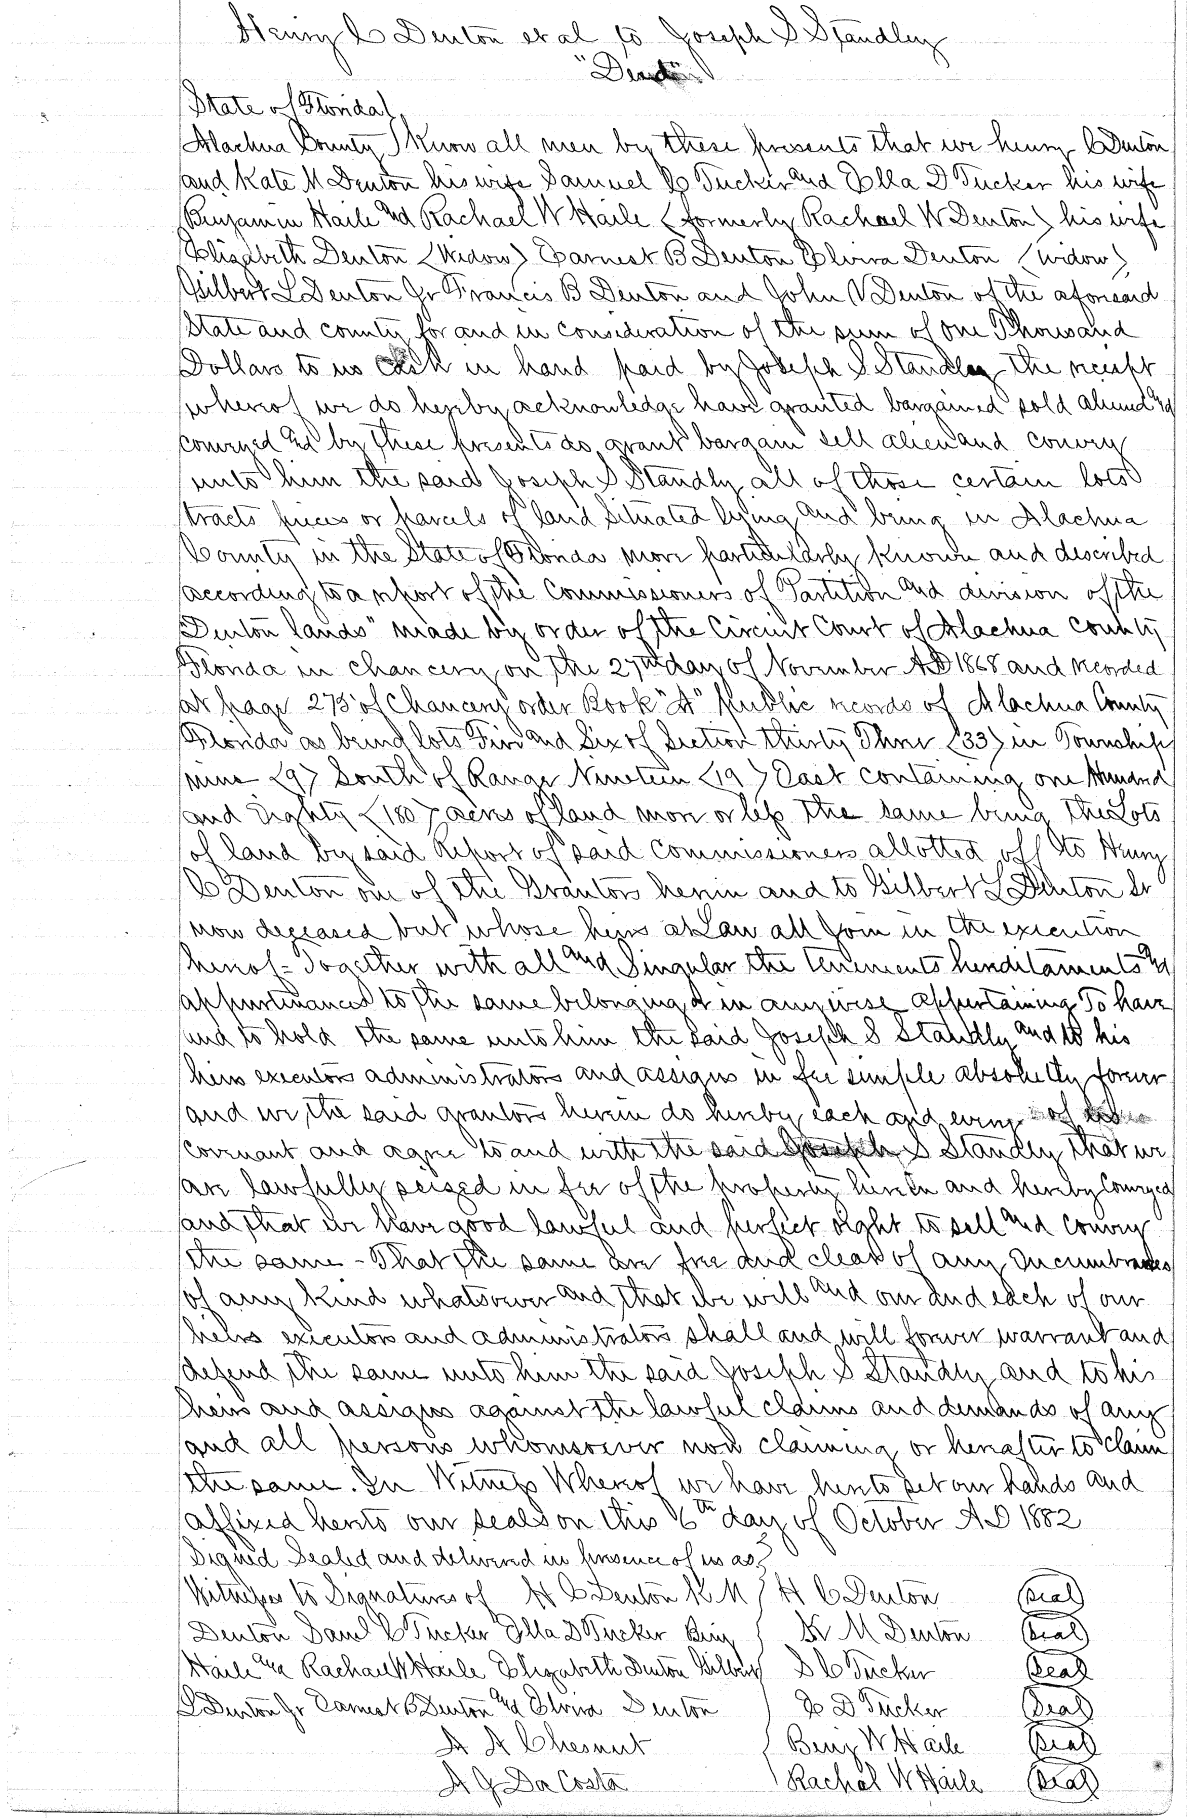 Henry C Denton et al to Joseph S Standley
"Deed"
State of Florida
Alachua County Know all men by these presents that we henry C Denton
and Kate M Denton his wife Samuel C Tucker and Ella D Tucker his wife
Benjamin Haile and Rachael W Haile (formerly Rachael W Denton) his wife
Elizabeth Denton (Widow) Earnest B Denton Elvira Denton (widow)
Gilbert L Denton Jr Francis B Denton and John V Denton of the aforesaid
State and county for and in consideration of the sum of one Thousand
Dollars to us cash in hand paid by Joseph S Standley the receipt
whereof we do hereby acknowledge have granted bargained sold aliened and
conveyed and by these presents do grant bargain sell alien and convey
unto him the said Joseph S Standly all of those certain lots
tracts pieces or parcels of land situated lying and being in Alachua
County in the State of Florida more particularly known and described
according to a report of the Commissioners of Partition and division of the
"Denton lands" made by order of the Circuit Court of Alachua County
Florida in chancery on the 27th day of November AD 1868 and recorded
at page 275 of Chancery order Book "A" public records of Alachua County
Florida as being lots Five and Six of Section thirty Three (33) in Township
nine (9) South of Range Nineteen (19) East containing one Hundred
and Eighty (180) acres of land more or less the same being the Lots
of land by said Report of said Commissioners allotted off to Henry
C Denton one of the Grantors herein and to Gilbert L Denton Sr
now deceased but whose heirs at Law all Join in the execution
hereof = Together with all and Singular the tenements hereditaments and
appurtenances to the same belonging or in anywise appertaining To have
and to hold the same unto him the said Joseph S Standly and to his
heirs executors administrators and assigns in fee simple absolutely forever
and we the said grantors herein do hereby each and every of us
covenant and agree to and with the said Joseph S Standly that we
are lawfully seized in fee of the property herein and hereby conveyed
and that we have good lawful and perfect right to sell and convey
the same - That the same are free and clear of any Incumbrances
of any kind whatsoever and that we will and our and each of our
heirs executors and administrators shall and will forever warrant and
defend the same unto him the said Joseph S Standly and to his
heirs and assigns against the lawful claims and demands of any
and all persons whomsoever now claiming or hereafter to claim
the same. In Witness Whereof we have hereto set our hands and
affixed hereto our seals on this 6th day of October AD 1882
Signed Sealed and delivered in presence of us as
Witnesses to Signatures of H C Denton K M H C Denton Seal
Denton Saml C Tucker Ella D Tucker Benj K M Denton Seal
Haile and Rachael W Haile Elizabeth Denton Gilbert S C Tucker Seal
L Denton Jr Earnest B Denton and Elvira Denton E D Tucker Seal
A A Chesnut Benj W Haile Seal
A G Da Costa Rachel W Haile Seal